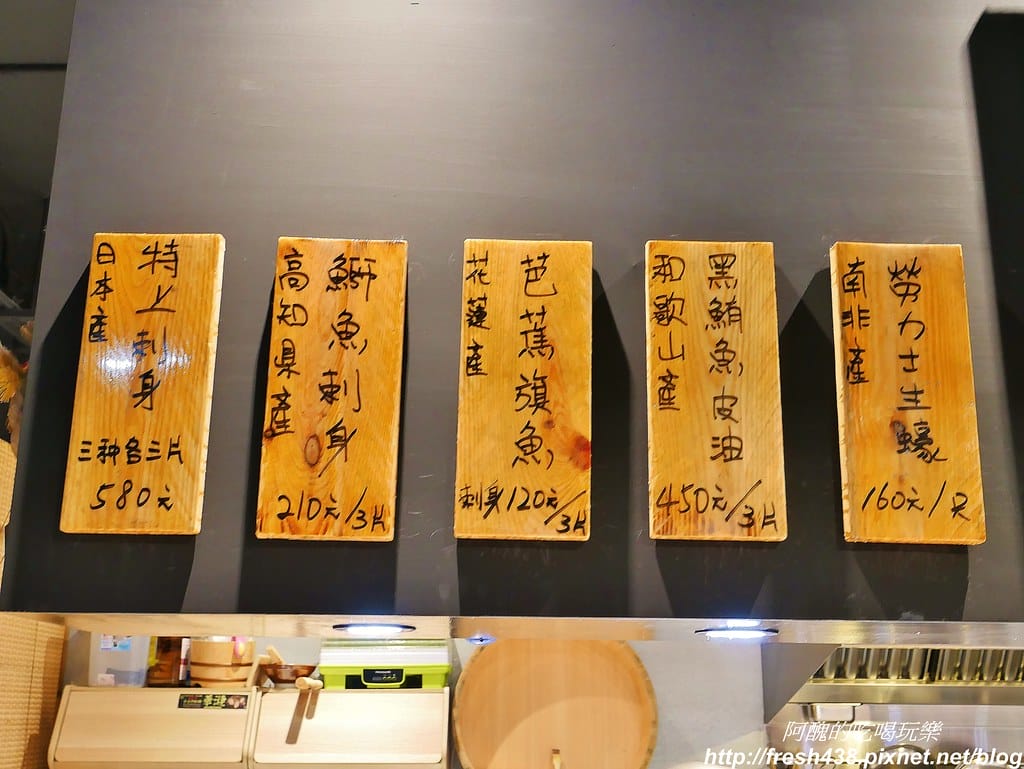 特上刺身
日本產
三种各三片
580元
鰤魚刺身
高知県產
210元/3片
芭蕉旗魚
花蓮產
刺身120元/3片
黑鮪魚皮油
和歌山產
450元/3片
勞力士生蠔
南非產
160元/只
阿醜的吃喝玩樂
http://fresh438.pixnet.net/blog